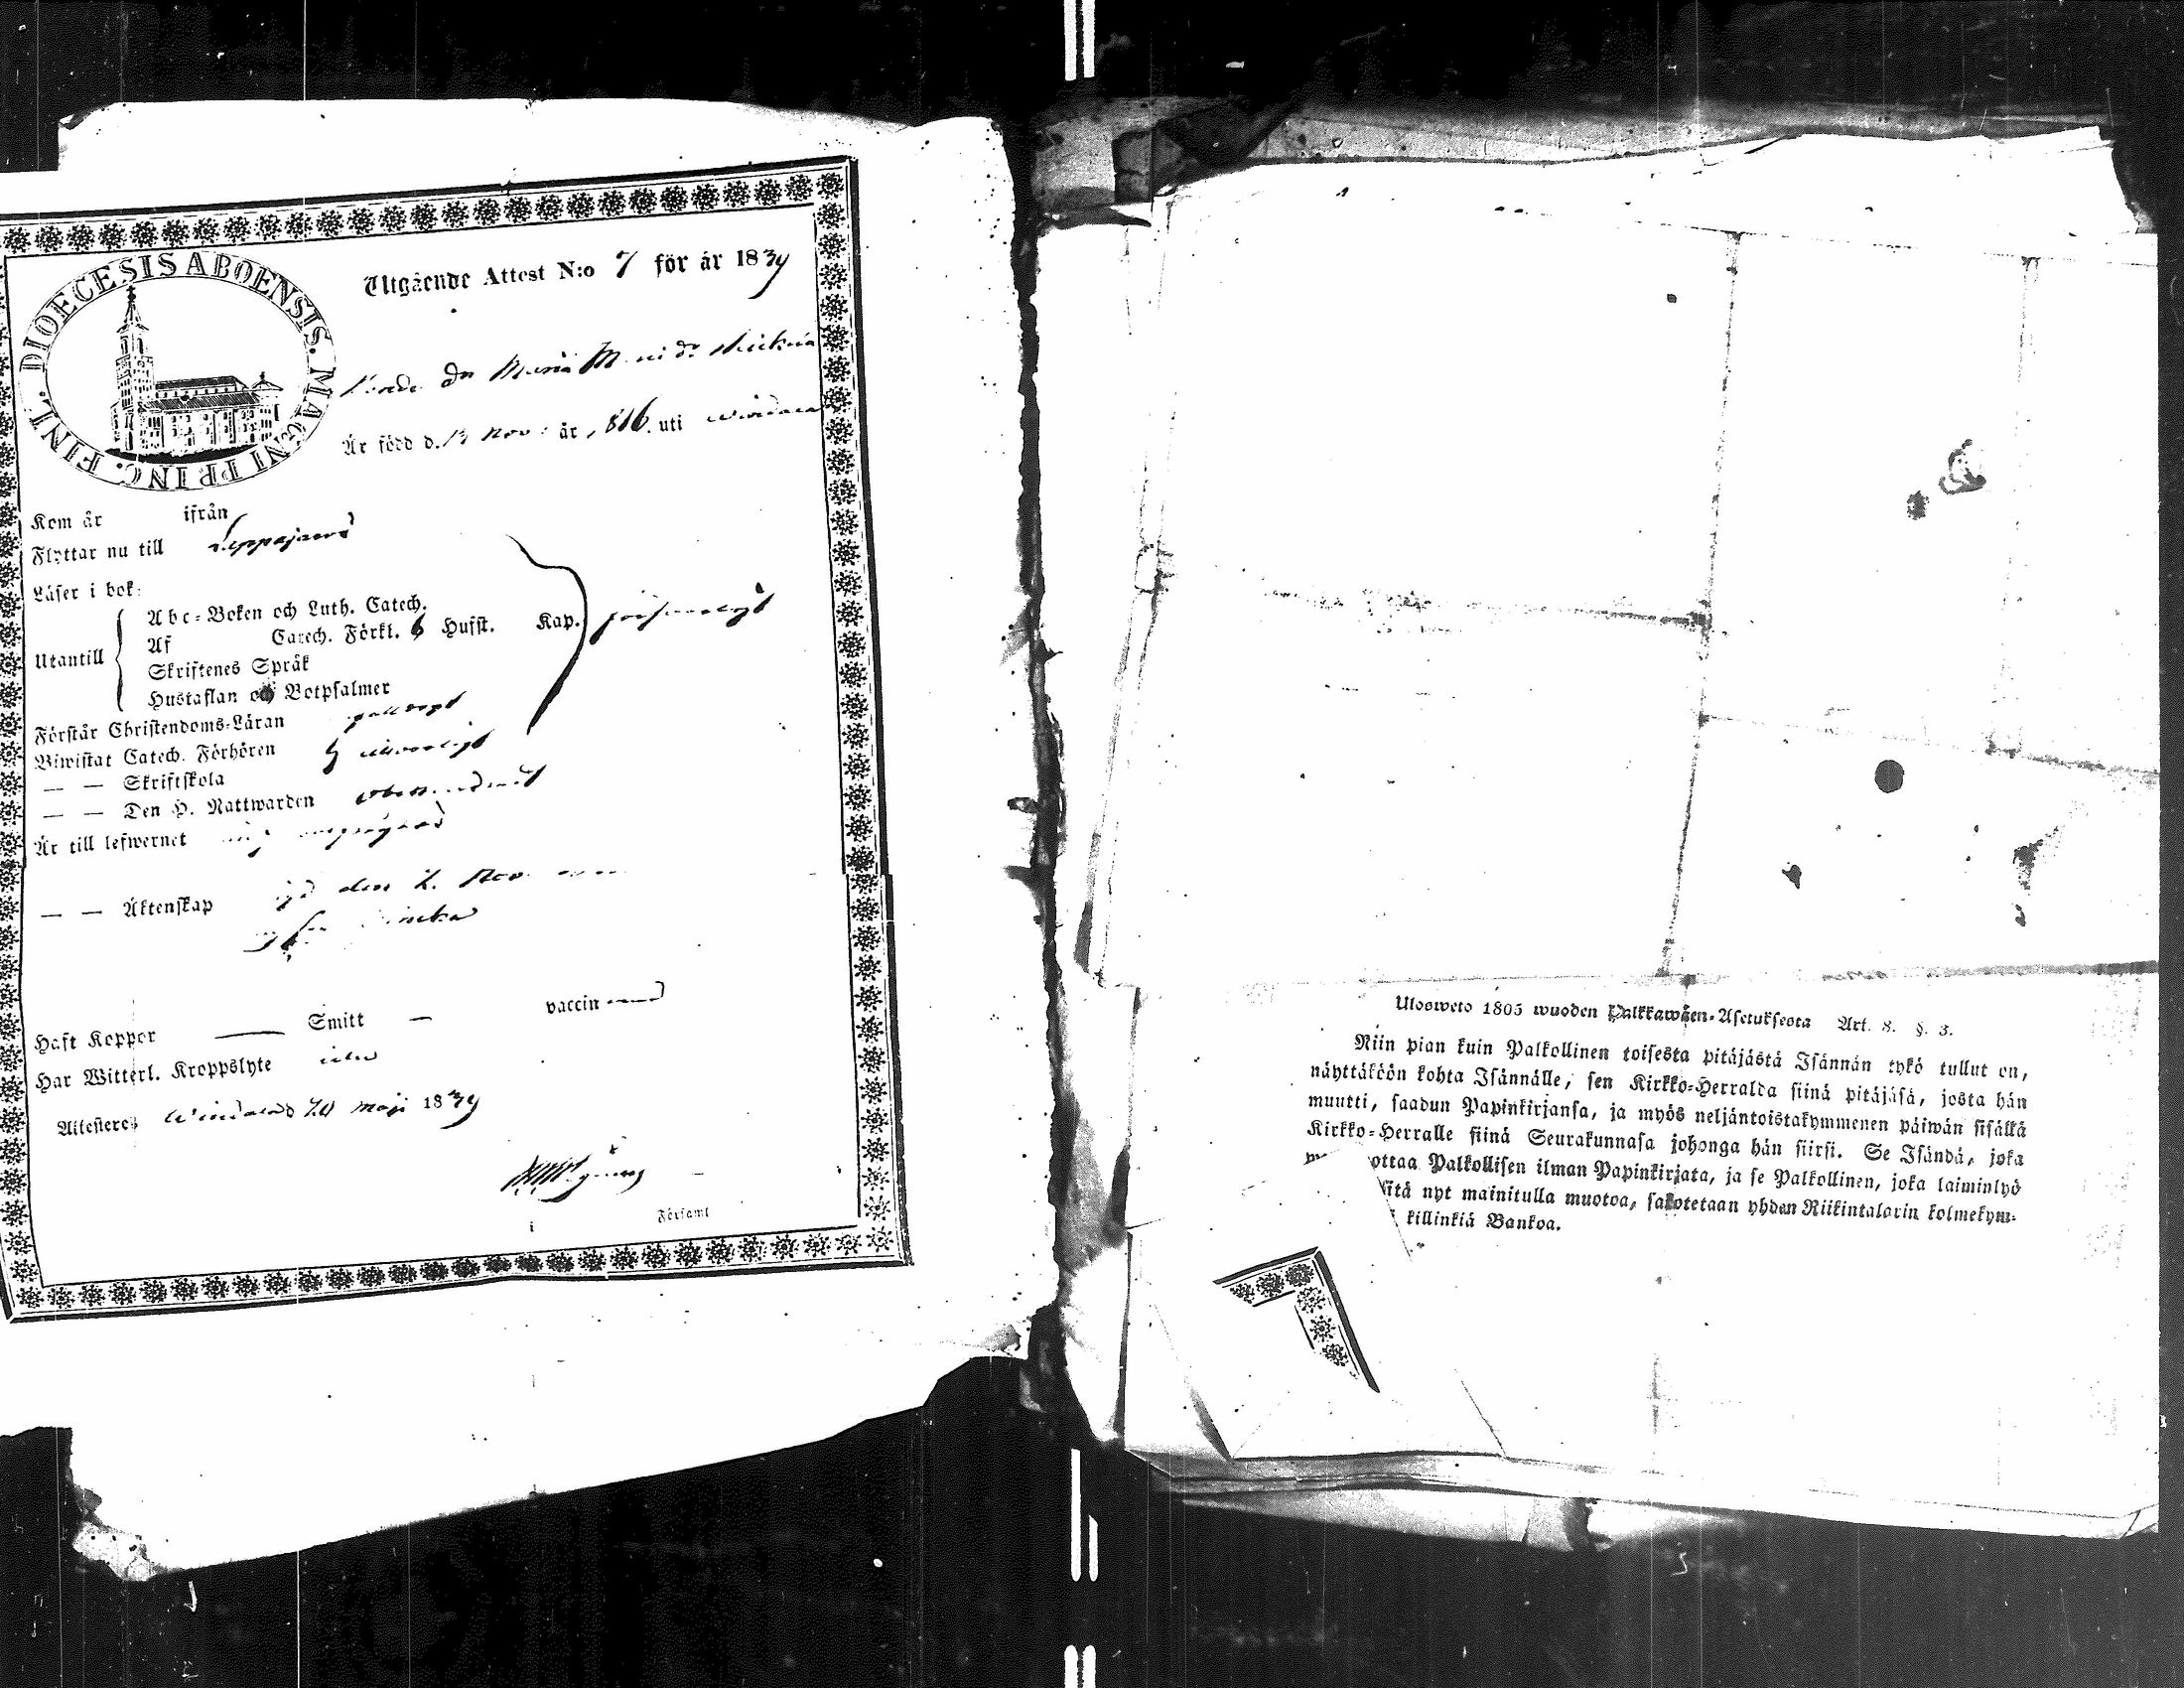 DIOECESIS ABOENSIS. MAGNI PRINC. FINL.
Utgående Attest N:o 7 för år 1839
Maria
Är född d. 13 Nov: år 1816. uti Wirdala
Kom år ifrån
Flyttar nu till Leppajärvi
Läser i bok:
Abc-Boken och Luth. Catech.
Utantill Af Catech. Förkl. 6 Husst. Kap. försvarligt
Skriftenes Språk
Hustaflan och Botpsalmer
Förstår Christendoms-Läran
Biwistat Catech. Förhören
— — Skriftskola
— — Den H. Nattwarden
Är till lefwernet
— — Äktenskap den 2. Nov
Haft Koppor — Smitt — vaccinerad
Har Witterl. Kroppslyte icke
Attesteras 20 Maji 1839
i Församl
Ulosweto 1805 wuoden Palkkawäen-Asetuksesta Art. 8. §. 3.
Niin pian kuin Palkollinen toisesta pitäjästä Isännän tykö tullut on,
näyttäköön kohta Isännälle, sen Kirkko-Herralda siinä pitäjäsä, josta hän
muutti, saadun Papinkirjansa, ja myös neljäntoistakymmenen päiwän sisällä
Kirkko-Herralle siinä Seurakunnasa johonga hän siirsi. Se Isändä, joka
ottaa Palkollisen ilman Papinkirjata, ja se Palkollinen, joka laiminlyö
sitä nyt mainitulla muotoa, sakotetaan yhden Riikintalarin kolmekym-
killinkiä Bankoa.